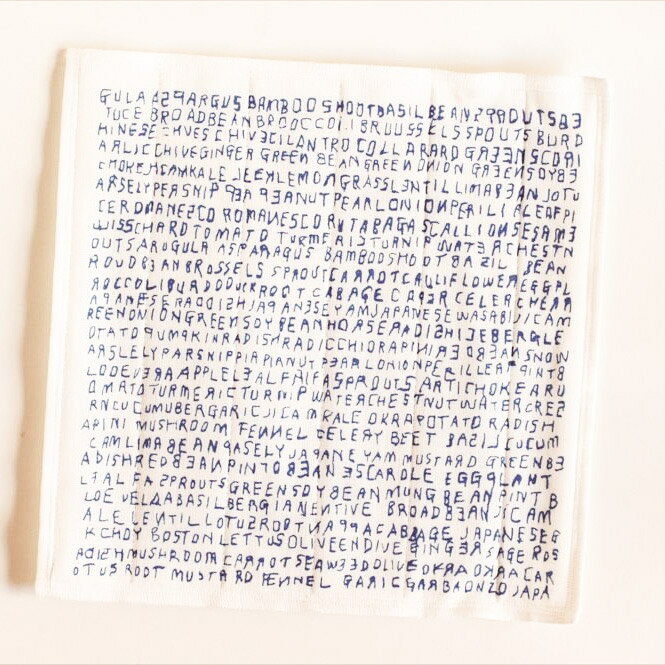 GULA ASPARGUS BAMBOO SHOOTBASIL BEANSPROUTSBE
TUCE BROADBEANBROOCCOLIBRUUSSELSSPOUTSBURD
HINESE CHVESCHIVECILANTROCOLLARARD GREENSCORI
ARLICCHIVEGINGER GREEN BEANGREENONION GREENSOYBE
LEEKLEMONGRASSLENTILLIMABEANJOTU
ARSELYPERSNIP PEA PEANUTPEARLONIONPERILIALEAFPI
CERDMANESCO ROMANESCORUTABAGASCALLIONSESAME
WISSCHARDTOMATO TURMERICTURNIPWATERCHESTN
OUTSAROGULA ASPARAGUS BAMBOOSHOOTBASIL BEAN
ROUDBEANBROSSELS SPROUTCARROTCAULIFLOWEREGGPL
ROCCOLIBURDOCKROOTCABAGECAPERCELERCHERR
APANESERADDISHJAPANESEYAMJAPANESEWASABIJICAM
REENONIONGREENSOYBEANHORSERADISHICEBERGLE
OTATOPUMPKINRADISHRADICCHIORAPINIREDBEANSNOW
ARSLELYPARSNIPPIAPIANUTPEARLONIONPERILLEAFPINTB
LOOEVERAAPPLELEALFALFASPROUTSARTICHOKEARU
OMATOTURMERICTURNIPWATERCHESTNUTWATERCRES
RNCUCUMUBERGARICJICAMKALEOKRAPOTATORADISH
APINI MUSHROOM FENNEL CELERY BEET BASIL CUCUM
CAMLIMABEANPASELYJAPANEYAMMUSTARD GREENBE
ADISHREDBEANPINTOBEANESCAROLE EGGPLANT
LFALFASPROUTSGREENSOYBEANMUNGBEANPINTB
LOEVELDABASILBERGIANENTIVE BROADBEANJICAM
ALELENTILLOTUSROOTNAPPACABBAGE JAPANESEG
KCHOY BOSTONLETTUSOLIVEENDIVEGINGERSAGEROS
ADISHMUSHROOMCARROTSEAWEEDOLIVEOKRAOKRACAR
OTUSROOT MUSTARD FENNEL GARICGARBAONZOJAPA